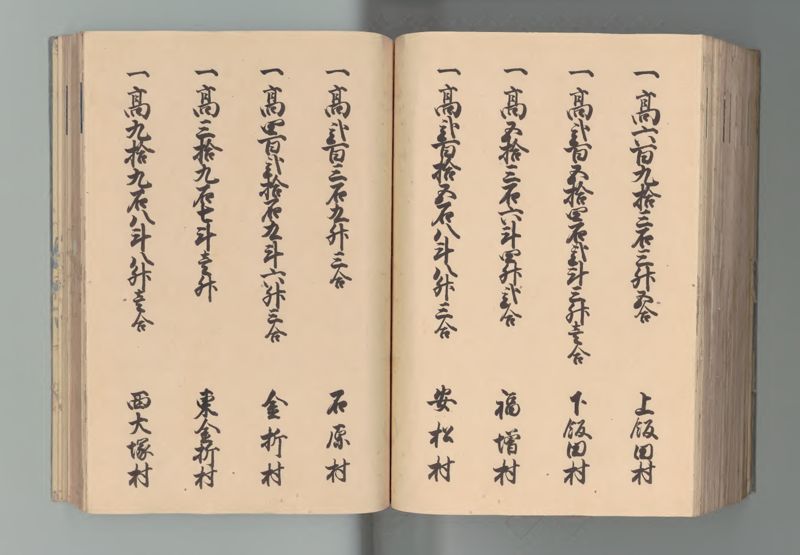 一高六百九拾三石三升五合 上飯田村
一高弐百五拾四石弐斗三升壱合 下飯田村
一高五拾三石六斗四升弐合 福増村
一高弐百拾五石八斗八升三合 安松村
一高弐百三石九升三合 石原村
一高四百弐拾石九斗六升三合 金折村
一高三拾九石七斗壱升 東金折村
一高九拾九石八斗八升壱合 西大塚村